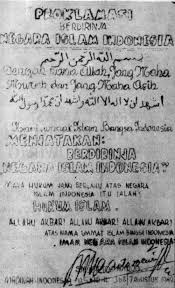 PROKLAMASI
BERDIRINJA
NEGARA ISLAM INDONESIA
بسم الله الرحمن الرحيم
Dengan nama Allah Jang Maha
Murah dan Jang Maha Asih
اشهد ان لا اله الا الله واشهد ان محمدا رسول الله
Kami, Ummat Islam Bangsa Indonesia
MENJATAKAN:
BERDIRINJA
NEGARA ISLAM INDONESIA
MAKA HUKUM JANG BERLAKU ATAS NEGARA
ISLAM INDONESIA ITU IALAH:
HUKUM ISLAM
ALLAHU AKBAR! ALLAHU AKBAR! ALLAHU AKBAR!
ATAS NAMA UMMAT ISLAM BANGSA INDONESIA
IMAM NEGARA ISLAM INDONESIA
MADINAH-INDONESIA
AGUSTUS 1949